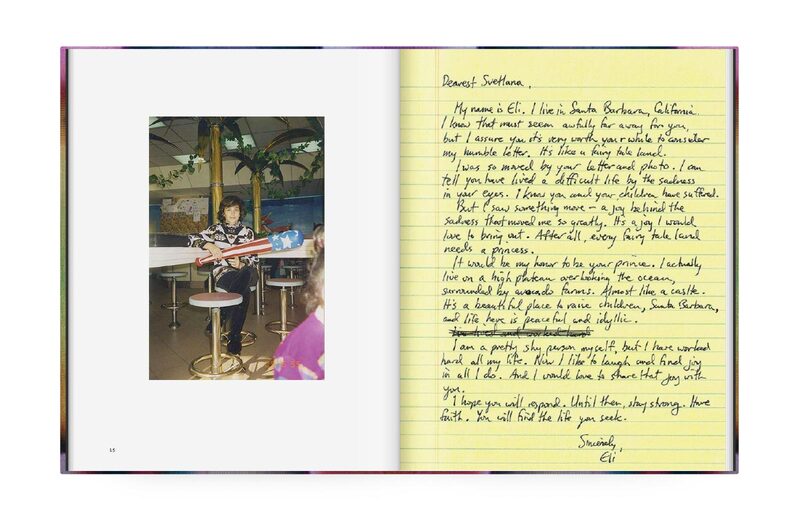 15
Dearest Svetlana,
My name is Eli. I live in Santa Barbara, California.
I know that must seem awfully far away for you,
but I assure you it's very worth your while to consider
my humble letter. It's like a fairy tale land.
I was so moved by your letter and photo. I can
tell you have lived a difficult life by the sadness
in your eyes. I know you and your children have suffered.
But I saw something more – a joy behind the
sadness that moved me so greatly. It's a joy I would
love to bring out. After all, every fairy tale land
needs a princess.
It would be my honor to be your prince. I actually
live on a high plateau overlooking the ocean,
surrounded by avocado farms. Almost like a castle.
It's a beautiful place to raise children, Santa Barbara,
and life here is peaceful and idyllic.
I am a pretty shy person myself, but I have worked
hard all my life. Now I like to laugh and find joy
in all I do. And I would love to share that joy with
you.
I hope you will respond. Until then, stay strong. Have
faith. You will find the life you seek.
Sincerely,
Eli